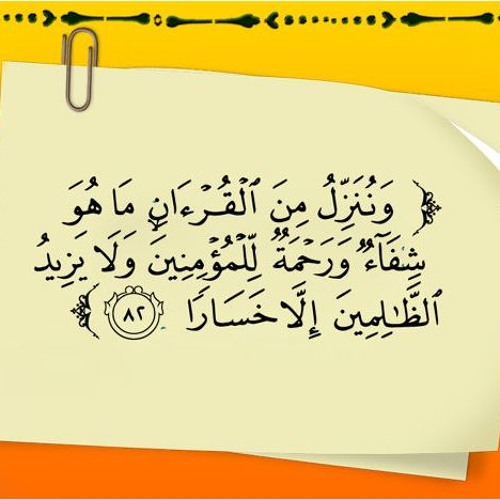 ﴿ وَنُنَزِّلُ مِنَ ٱلْقُرْءَانِ مَا هُوَ
شِفَآءٌ وَرَحْمَةٌ لِّلْمُؤْمِنِينَ وَلَا يَزِيدُ
ٱلظَّٰلِمِينَ إِلَّا خَسَارًا ٨٢ ﴾